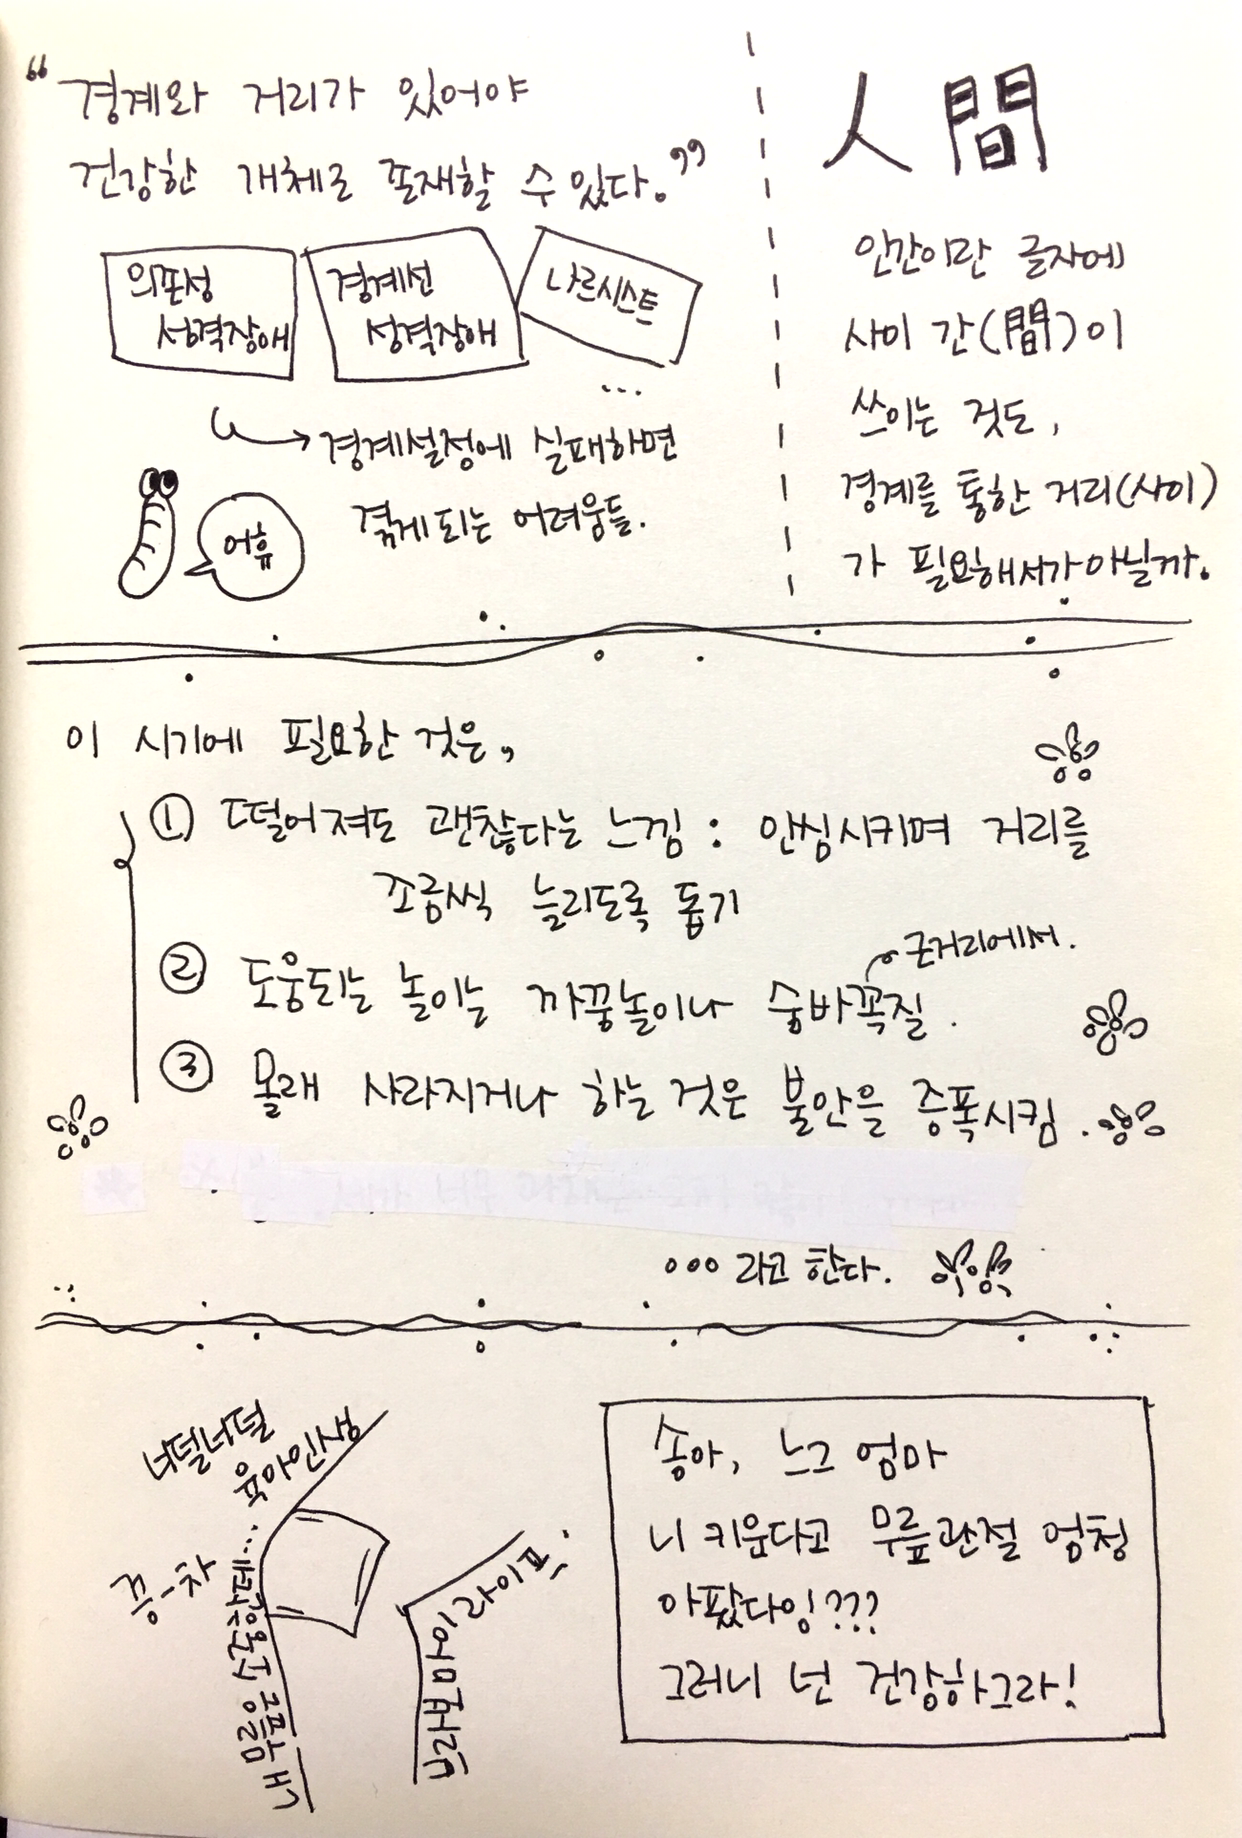 “경계와 거리가 있어야
건강한 개체로 존재할 수 있다.”
의존성
성격장애
경계선
성격장애
나르시스트
...
경계설정에 실패하면
겪게되는 어려움들.
어휴
人間
인간이란 글자에
사이 간(間)이
쓰이는 것도,
경계를 통한 거리(사이)
가 필요해서가 아닐까.
이 시기에 필요한 것은,
① 떨어져도 괜찮다는 느낌 : 안심시키며 거리를
조금씩 늘리도록 돕기
② 도움되는 놀이는 까꿍놀이나 숨바꼭질.
근거리에서.
③ 몰래 사라지거나 하는 것은 불안을 증폭시킴.
... 라고 한다.
너덜너덜
육아인생
끙-차
내 무릎
엄마의 라이프
송아, 느그 엄마
니 키운다고 무릎관절 엄청
아팠다잉???
그러니 넌 건강하그라!